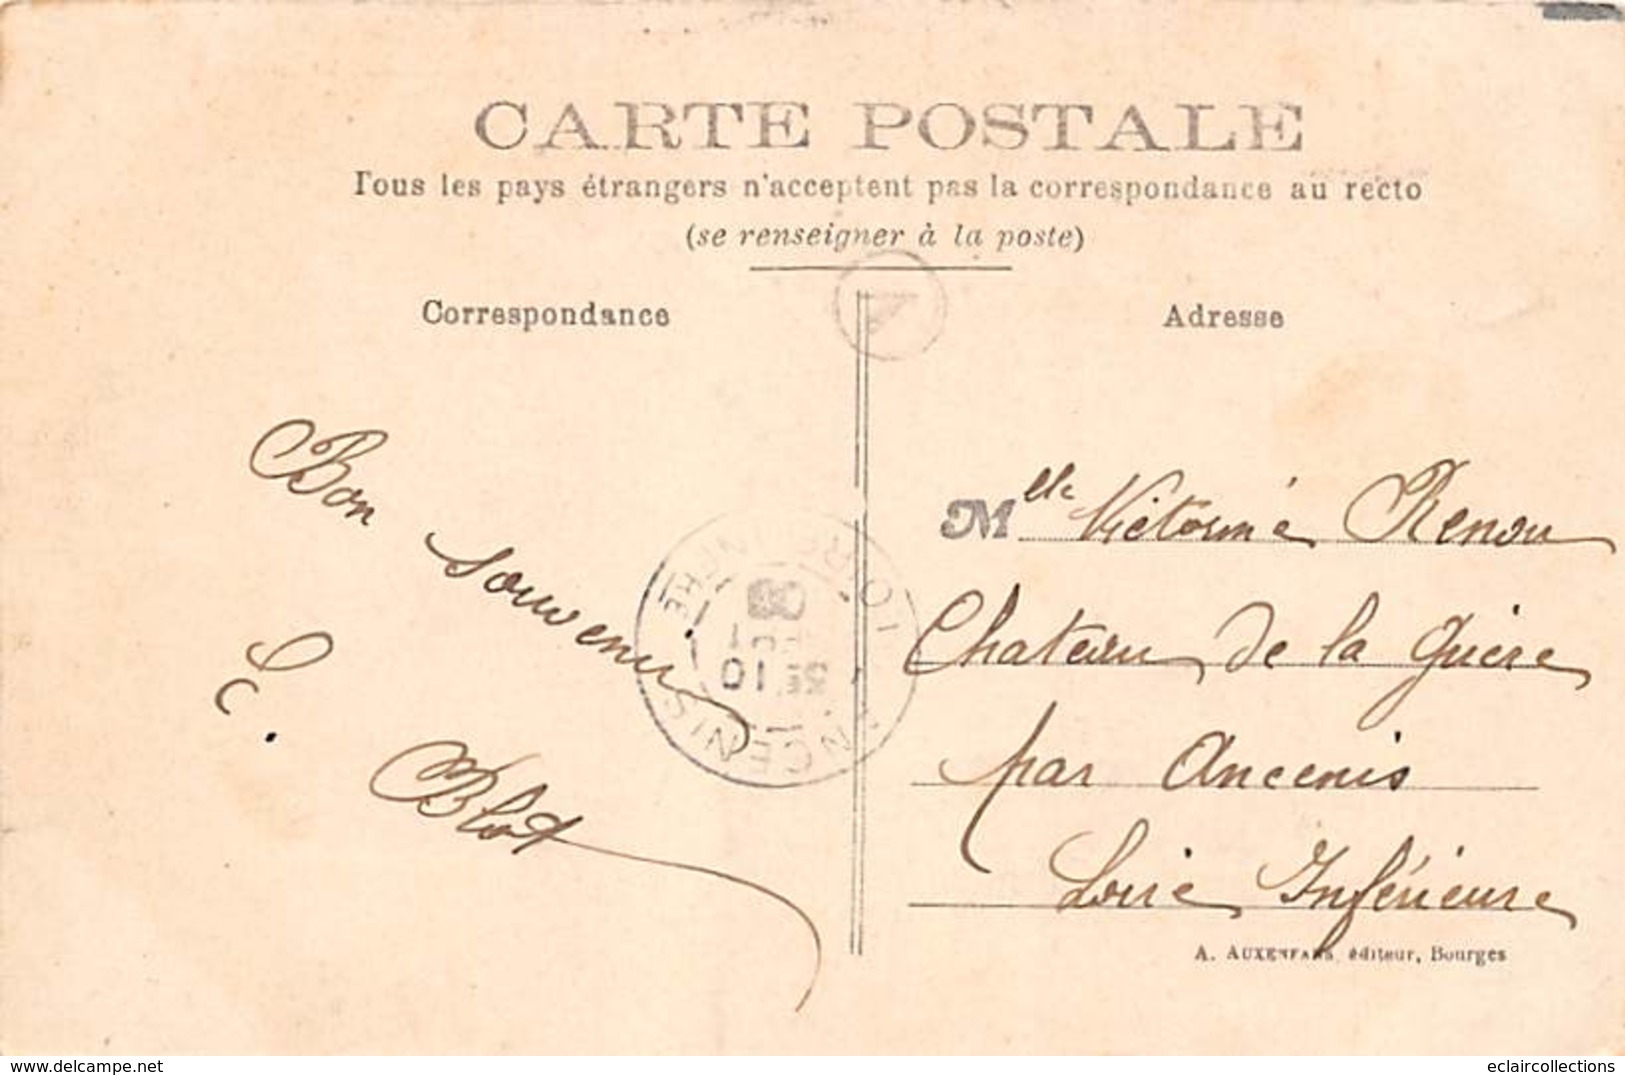 CARTE POSTALE
Tous les pays étrangers n'acceptent pas la correspondance au recto
(se renseigner à la poste)
Correspondance
Adresse
Bon souvenir
C. Blot
Melle Victorine Renou
Chateau de la Guère
par Ancenis
Loire Inférieure
ANCENIS
LOIRE INFRE
10
08
A. AUXENFANS, éditeur, Bourges
www.delcampe.net
eclaircollections